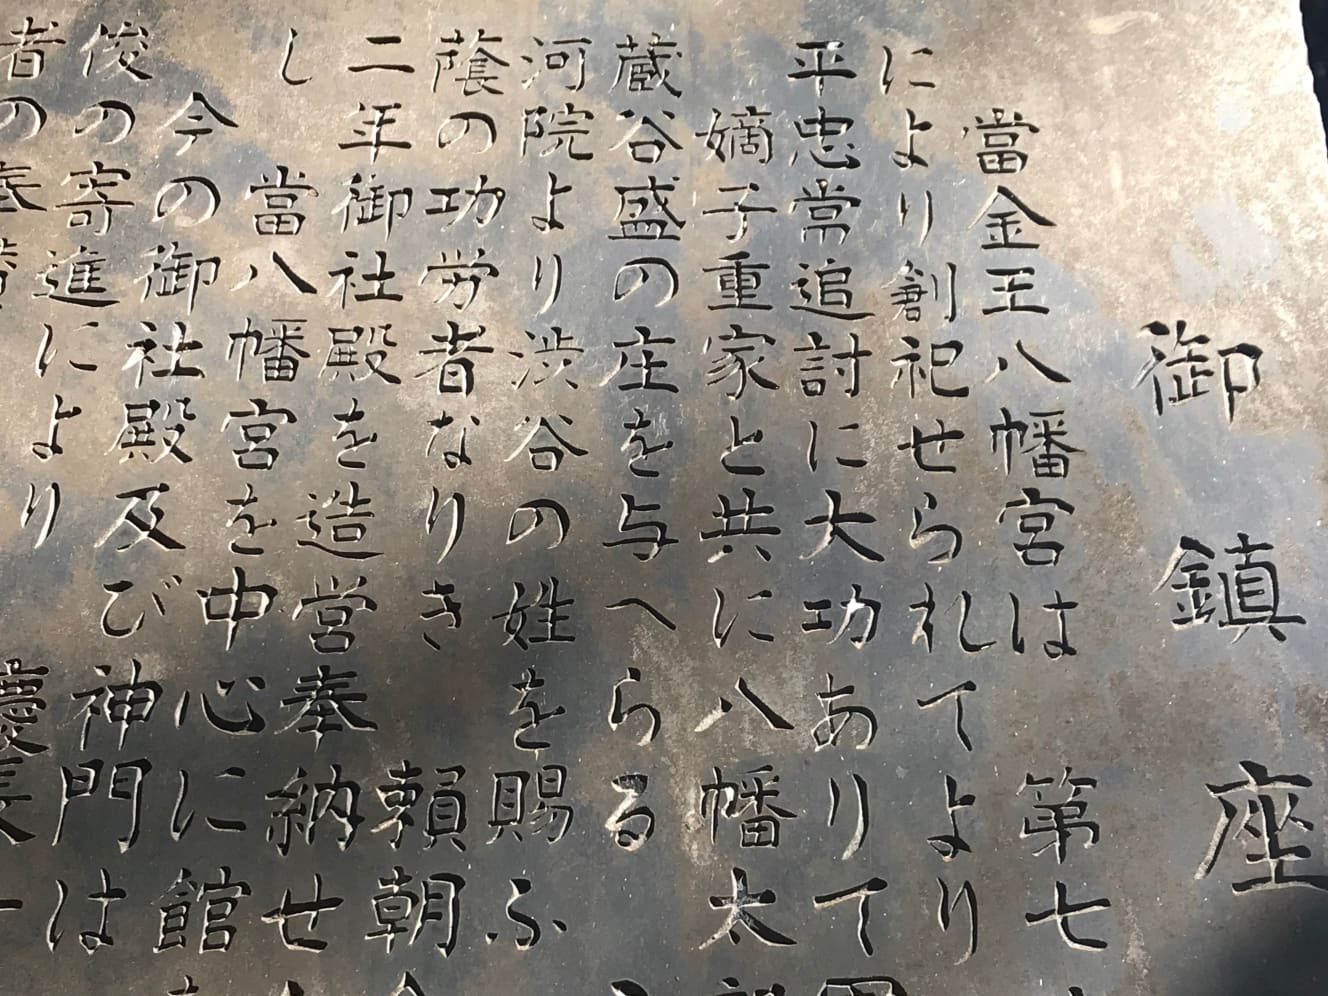 御鎮座
當金王八幡宮は　第七
により創祀せられてより
平忠常追討に大功ありて
嫡子重家と共に八幡太
蔵谷盛の庄を与へらる
河院より渋谷の姓を賜ふ
蔭の功労者なりき　頼朝
二年御社殿を造営奉納せ
し　當八幡宮を中心に館
今の御社殿及び神門は
俊の寄進により　慶長
者の奉